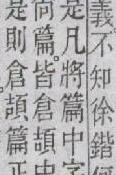 義。不知徐鍇
是凡將篇中字
尚篇。皆倉頡中
是則倉頡篇正